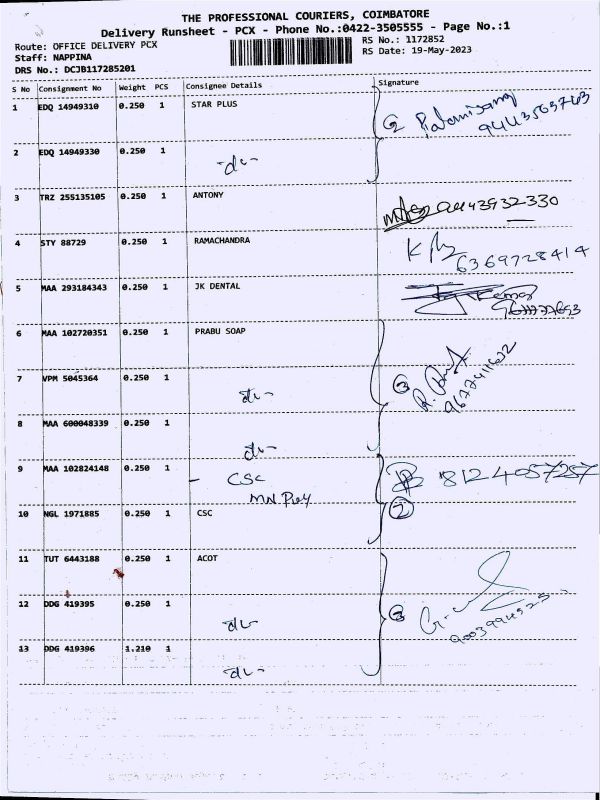 THE PROFESSIONAL COURIERS, COIMBATORE
Delivery Runsheet - PCX - Phone No.:0422-3505555 - Page No.:1
Route: OFFICE DELIVERY PCX
RS No.: 1172852
Staff: NAPPINA
RS Date: 19-May-2023
DRS No.: DCJB117285201
S No Consignment No Weight PCS Consignee Details Signature
1 EDQ 14949310 0.250 1 STAR PLUS
9443563763
2 EDQ 14949330 0.250 1 -do-
3 TRZ 255135105 0.250 1 ANTONY 9443932330
4 STY 88729 0.250 1 RAMACHANDRA
6369728414
5 MAA 293184343 0.250 1 JK DENTAL
6 MAA 102720351 0.250 1 PRABU SOAP
7 VPM 5045364 0.250 1 do- 3
9677411632
8 MAA 600048339 0.250 1 do-
9 MAA 102824148 0.250 1 - CSC 8124057257
10 NGL 1971885 0.250 1 CSC 2
11 TUT 6443188 0.250 1 ACOT
12 DDG 419395 0.250 1 do- 3
9003994525
13 DDG 419396 1.210 1 do-